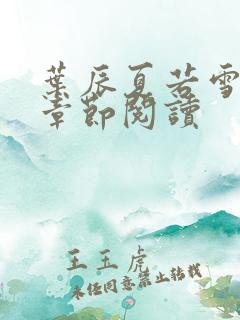 葉辰夏若雪
章節閱讀
王玉虎
未经同意禁止转载